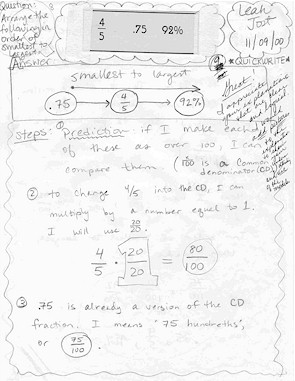 Question:
Arrange the
following in
order of
smallest to
largest
4/5 .75 92%
Leah
11/09/00
Answer
*QUICKWRITE*
smallest to largest
Great!
.75 → 4/5 → 92%
steps: ① Prediction: if I make each
of these as over 100, I can
compare them. (100 is a common
denominator (CD)
② to change 4/5 into the CD, I can
multiply by a number equal to 1.
I will use 20/20.
4/5 · 20/20 = 80/100
③ .75 is already a version of the CD
fraction. I means "75 hundreths",
or 75/100.